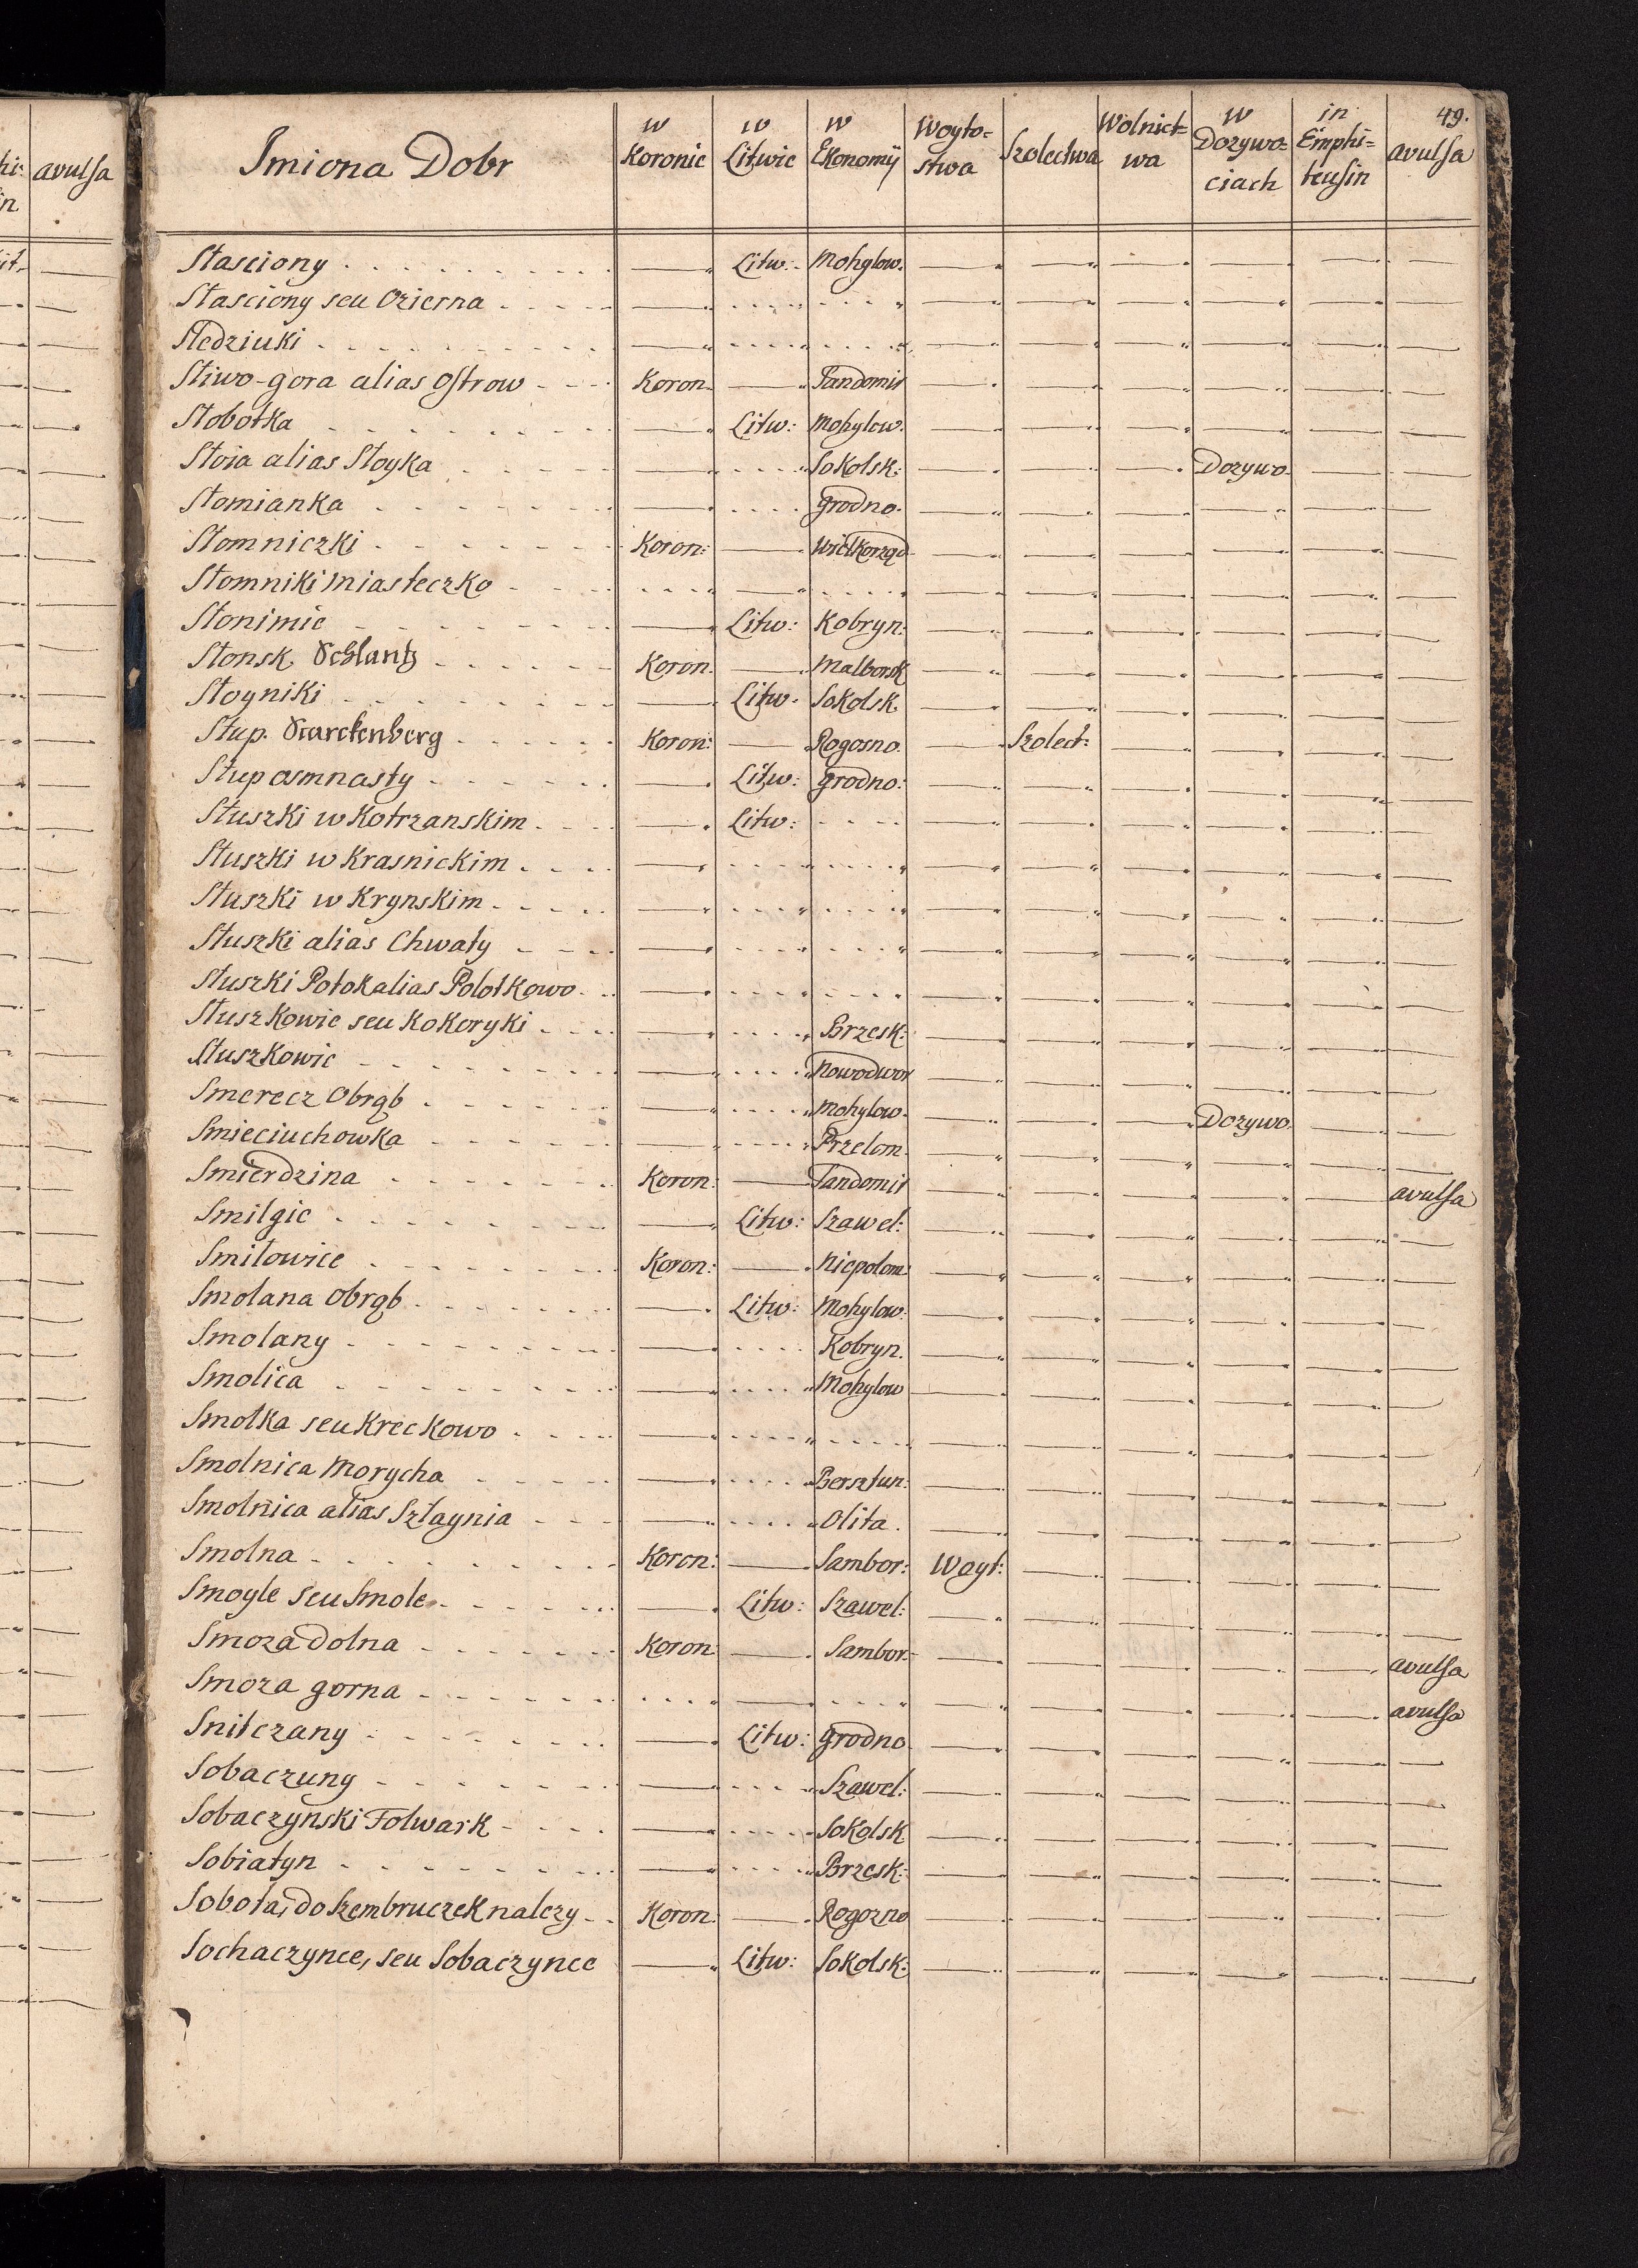 49.
Imiona Dobr | w Koronie | w Litwie | w Ekonomij | Woyto=stwa | Szolectwa | Wolnict=wa | w Dozywo=ciach | in Emphi=teusin | avulsa
Słasciony . . . . — Litw: Mohylow. — — — — — —
Słasciony seu Ozierna . . . . — . . . . . . . . — — — — — —
Sledziuki . . . . — . . . . . . . . — — — — — —
Sliwo-gora alias Ostrow . . . . Koron. — Sandomir — — — — — —
Słobotka . . . . — Litw: Mohylow. — — — — — —
Słoia alias Słoyka . . . . — . . . . Sokolsk: — — — Dozywo. — —
Słomianka . . . . — . . . . Grodno. — — — — — —
Słomniczki . . . . Koron: — Wielkorząd — — — — — —
Słomniki miasteczko . . . . . . . . — . . . . — — — — — —
Słonimie . . . . — Litw: Kobryn: — — — — — —
Słonsk. Schlantz . . . . Koron. — Malborsk — — — — — —
Słoyniki . . . . — Litw. Sokolsk. — — — — — —
Słup. Starckenberg . . . . Koron: — Rogosno. — Szolect: — — — —
Słup osmnasty . . . . — Litw: Grodno: — — — — — —
Słuszki w Kotrzanskim . . . . — Litw: . . . . — — — — — —
Słuszki w Krasnickim . . . . — . . . . . . . . — — — — — —
Słuszki w Krynskim . . . . — . . . . . . . . — — — — — —
Słuszki alias Chwaty . . . . — . . . . . . . . — — — — — —
Słuszki Potok alias Polotkowo . . — . . . . . . . . — — — — — —
Słuszkowie seu Kokoryki . . . . — . . . . Brzesk: — — — — — —
Słuszkowie . . . . — . . . . Nowodwor — — — — — —
Smerecz Obrąb . . . . — . . . . Mohylow. — — — Dozywo. — —
Smieciuchowka . . . . — . . . . Przelom. — — — — — —
Smierdzina . . . . Koron: — Sandomir — — — — — avulsa
Smilgie . . . . — Litw: Szawel: — — — — — —
Smiłowice . . . . Koron: — Niepolom: — — — — — —
Smolana Obrąb . . . . — Litw: Mohylow: — — — — — —
Smolany . . . . — . . . . Kobryn. — — — — — —
Smolica . . . . — . . . . Mohylow — — — — — —
Smolka seu Kreckowo . . . . — . . . . . . . . — — — — — —
Smolnica Morycha . . . . — . . . . Bersztun: — — — — — —
Smolnica alias Szlaynia . . . . — . . . . Olita. — — — — — —
Smolna . . . . Koron: — Sambor: Woyt: — — — — —
Smoyle seu Smole . . . . — Litw: Szawel: — — — — — —
Smoza Dolna . . . . Koron. — Sambor. — — — — — avulsa
Smoza gorna . . . . . . . . — . . . . — — — — — avulsa
Snitczany . . . . — Litw: Grodno — — — — — —
Sobaczuny . . . . — . . . . Szawel: — — — — — —
Sobaczynski Folwark . . . . — . . . . Sokolsk — — — — — —
Sobiatyn . . . . — . . . . Brzesk: — — — — — —
Sobota, do Szembruczek nalezy . . Koron. — Rogozno — — — — — —
Sochaczynce, seu Sobaczynce — Litw: Sokolsk: — — — — — —
avulsa